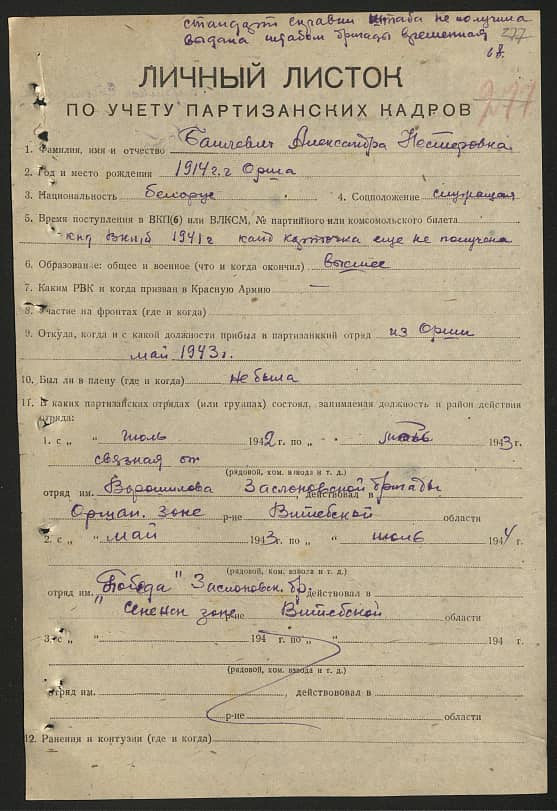 стандарт справки штаба не получила
выдана штабом бригады временная
277
277
ЛИЧНЫЙ ЛИСТОК
ПО УЧЕТУ ПАРТИЗАНСКИХ КАДРОВ
1. Фамилия, имя и отчество Александра Нестеровна
2. Год и место рождения 1914 г. г Орша
3. Национальность белорус 4. Соцположение служащая
5. Время поступления в ВКП(б) или ВЛКСМ, № партийного или комсомольского билета
1941 г канд карточка еще не получена
6. Образование: общее и военное (что и когда окончил) высшее
7. Каким РВК и когда призван в Красную Армию —
8. Участие на фронтах (где и когда)
9. Откуда, когда и с какой должности прибыл в партизанский отряд из Орши
май 1943 г.
10. Был ли в плену (где и когда) не была
11. В каких партизанских отрядах (или группах) состоял, занимаемая должность и район действия
отряда:
1. с „ “ июль 1942 г. по „ “ 1943 г.
связная от
(рядовой, ком. взвода и т. д.)
отряд им. Ворошилова Заслоновской бригады, действовал в
Оршан. зоне р-не Витебской области
2. с „ “ май 1943 г. по „ “ июль 1944 г.
(рядовой, ком. взвода и т. д.)
отряд им. "Победа" Заслоновск. бр. действовал в
Сененск зоне р-не Витебской области
3. с „ “ 194 г. по „ “ 194 г.
(рядовой, ком. взвода и т. д.)
отряд им. , действововал в
р-не области
12. Ранения и контузии (где и когда)